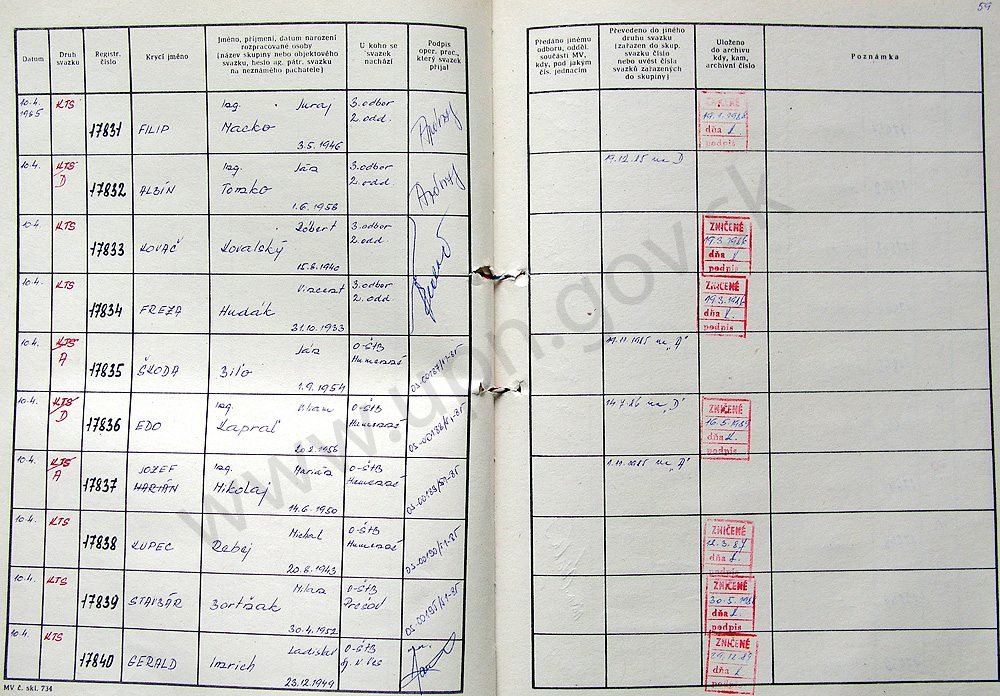 59
Datum
Druh svazku
Registr. číslo
Krycí jméno
Jméno, příjmení, datum narození
rozpracované osoby
(název skupiny nebo objektového
svazku, heslo ag. pátr. svazku
na neznámého pachatele)
U koho se
svazek
nachází
Podpis
oper. prac.,
který svazek
přijal
Předáno jinému
odboru, odděl.
součásti MV,
kdy, pod jakým
čís. jednacím
Převedeno do jiného
druhu svazku
(zařazen do skup.
svazku číslo
nebo uvést čísla
svazků zařazených
do skupiny)
Uloženo
do archivu
kdy, kam,
archivní číslo
Poznámka
10.4. KTS Ing. Juraj 3. odbor
1985 2. odd.
17831 FILIP Macko
3.5.1946
ZNIČENÉ
19.1.1988
dňa
podpis
10.4. KTS Ing. Ján 3. odbor 19.12.85 na D
D 2. odd.
17832 ALBÍN Tomko
1.6.1958
10.4. KTS Róbert 3. odbor
2. odd.
17833 KOVÁČ Kovalský
15.6.1940
ZNIČENÉ
19.3.1986
dňa
podpis
10.4. KTS Vincent 3. odbor
2. odd.
17834 FREZA Hudák
31.10.1933
ZNIČENÉ
19.3.1986
dňa
podpis
10.4. KTS Ján O-ŠtB 19.11.1985 na "A"
A Humenné
17835 ŠKODA Bilo
1.9.1954
10.4. KTS Ing. Viliam O-ŠtB 14.7.86 na "D"
D Humenné
17836 EDO Kapraľ
1956
ZNIČENÉ
16.5.1989
dňa
10.4. KTS JOZEF Ing. Marián O-ŠtB 1.11.1985 na "A"
A Humenné
17837 MARIÁN Mikolaj
14.6.1950
10.4. KTS Michal O-ŠtB
Humenné
17838 KUPEC Rebej
20.8.1943
ZNIČENÉ
dňa
podpis
10.4. KTS Milan O-ŠtB
Prešov
17839 STAVBÁR Bortňak
30.4.1952
ZNIČENÉ
dňa
podpis
10.4. KTS Ladislav O-ŠtB
17840 GERALD Imrich
23.12.1949
ZNIČENÉ
dňa
podpis
MV č. skl. 734
www.upn.gov.sk